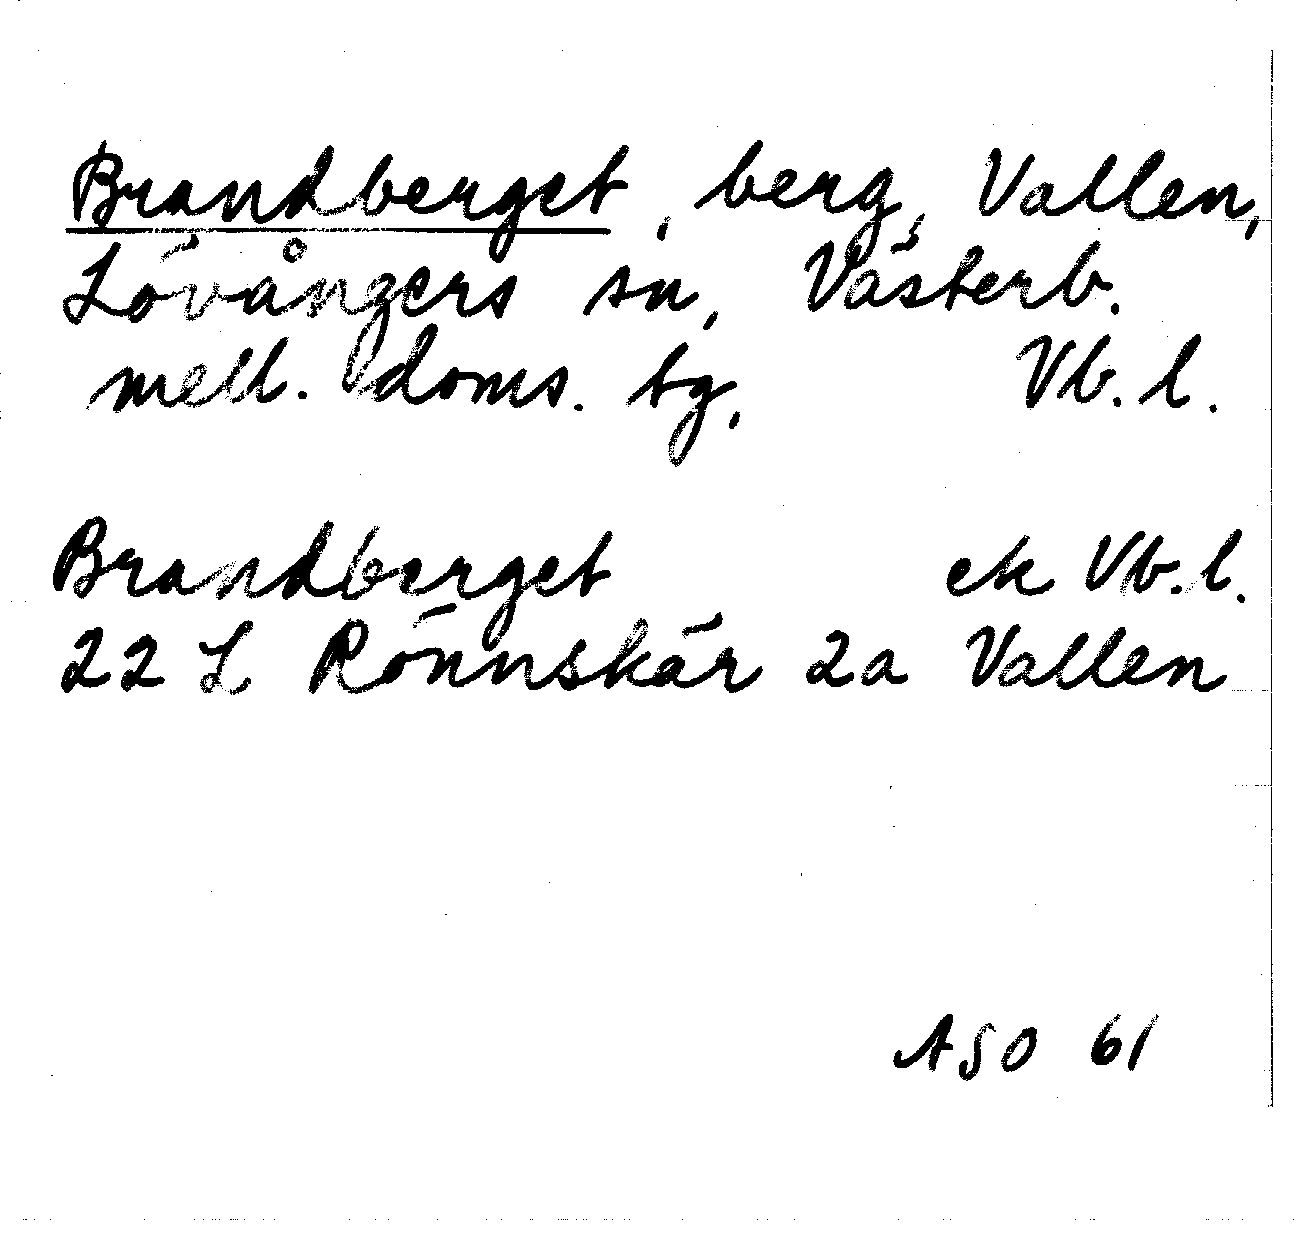 Brandberget, berg, Vallen,
Lövångers sn, Västerb.
mell. doms. tg, Vb. l.
Brandberget ek Vb. l.
22 L Rönnskär 2a Vallen
ASO 61